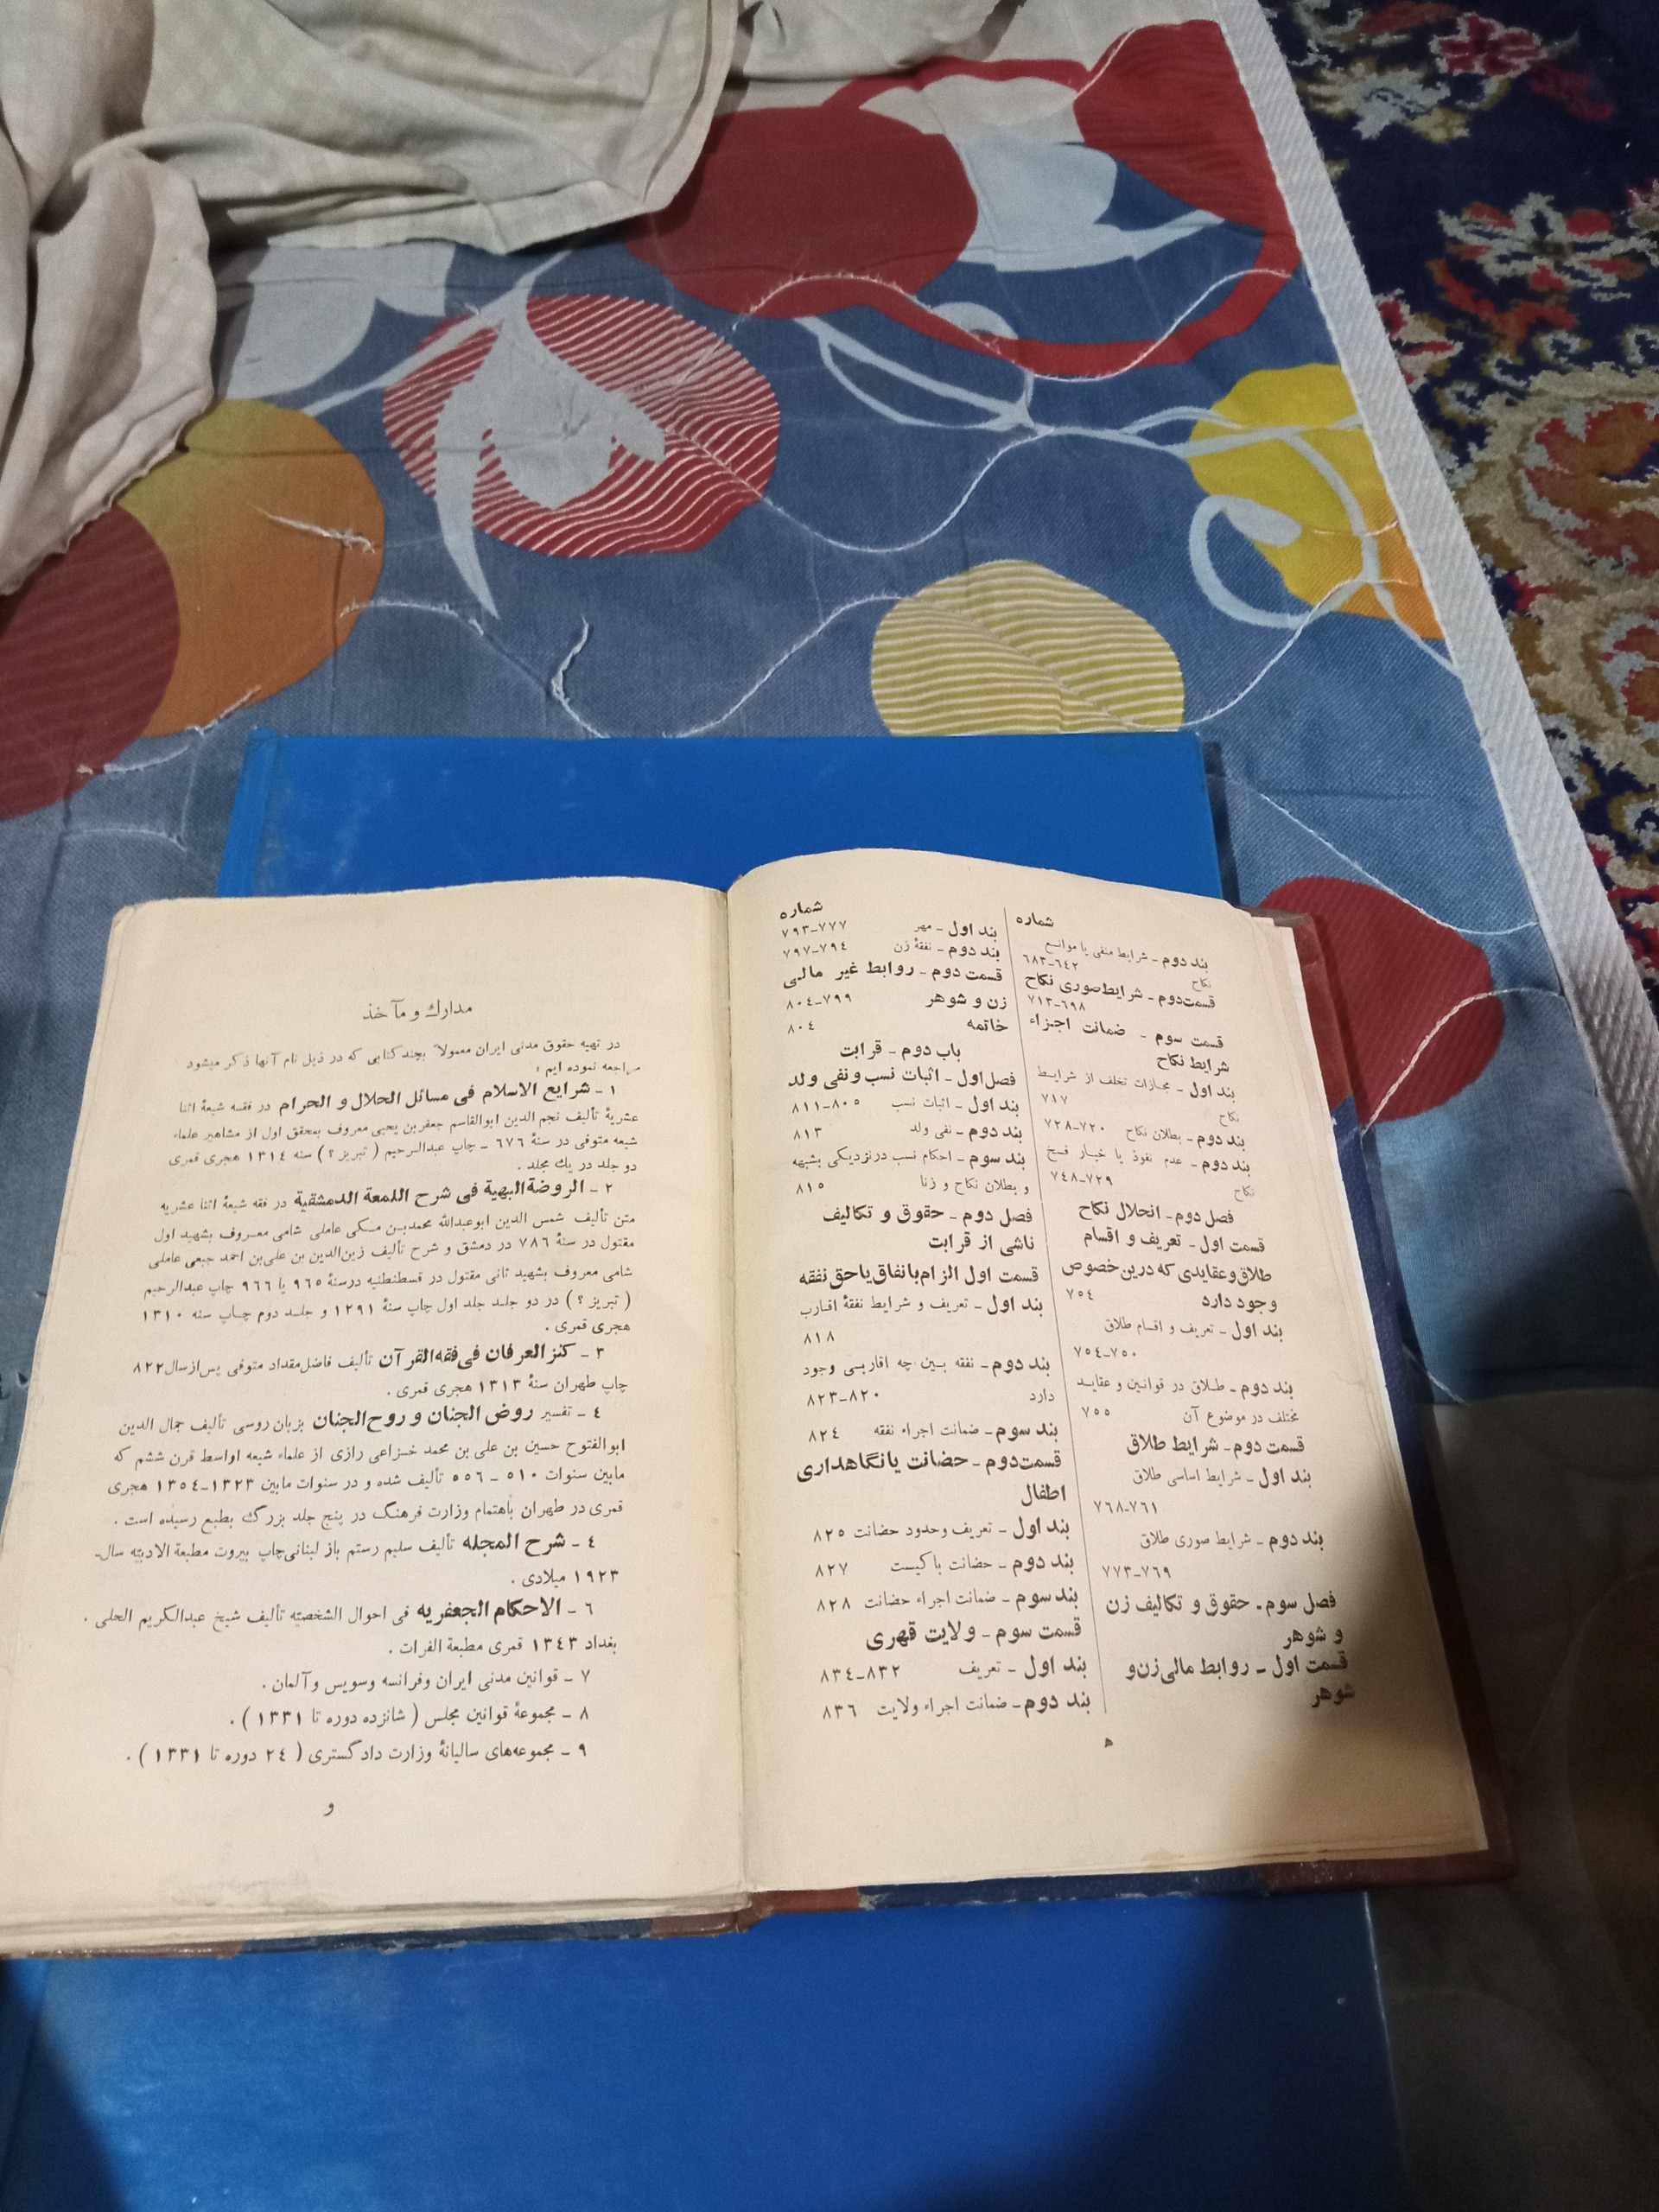 شماره
بند دوم ـ شرایط منفی یا موانع
نکاح ٦٤٢-٦٨٣
قسمت‌دوم ـ شرایط‌صوری نکاح
٦٩٨-٧١٣
قسمت سوم ـ ضمانت اجزاء
شرایط نکاح
بند اول ـ مجازات تخلف از شرایط
نکاح ٧١٧
بند دوم ـ بطلان نکاح ٧٢٠-٧٢٨
بند دوم ـ عدم نفوذ یا خیار فسخ
نکاح ٧٢٩-٧٤٨
فصل دوم ـ انحلال نکاح
قسمت اول ـ تعریف و اقسام
طلاق‌وعقایدی که درین‌خصوص
وجود دارد ٧٥٤
بند اول ـ تعریف و اقسام طلاق
٧٥٠-٧٥٤
بند دوم ـ طلاق در قوانین و عقاید
مختلف در موضوع آن ٧٥٥
قسمت دوم ـ شرایط طلاق
بند اول ـ شرایط اساسی طلاق
٧٦١-٧٦٨
بند دوم ـ شرایط صوری طلاق
٧٦٩-٧٧٣
فصل سوم ـ حقوق و تکالیف زن
و شوهر
قسمت اول ـ روابط مالی‌زن‌و
شوهر
شماره
بند اول ـ مهر ٧٧٧-٧٩٣
بند دوم ـ نفقهٔ زن ٧٩٤-٧٩٧
قسمت دوم ـ روابط غیر مالی
زن و شوهر ٧٩٩-٨٠٤
خاتمه ٨٠٤
باب دوم ـ قرابت
فصل‌اول ـ اثبات نسب‌و نفی ولد
بند اول ـ اثبات نسب ٨٠٥-٨١١
بند دوم ـ نفی ولد ٨١٣
بند سوم ـ احکام نسب درنزدیکی بشبهه
و بطلان نکاح و زنا ٨١٥
فصل دوم ـ حقوق و تکالیف
ناشی از قرابت
قسمت اول الزام‌بانفاق‌یاحق‌نفقه
بند اول ـ تعریف و شرایط نفقهٔ اقارب
٨١٨
بند دوم ـ نفقه بین چه اقاربی وجود
دارد ٨٢٠-٨٢٣
بند سوم ـ ضمانت اجراء نفقه ٨٢٤
قسمت‌دوم ـ حضانت یانگاهداری
اطفال
بند اول ـ تعریف وحدود حضانت ٨٢٥
بند دوم ـ حضانت باکیست ٨٢٧
بند سوم ـ ضمانت اجراء حضانت ٨٢٨
قسمت سوم ـ ولایت قهری
بند اول ـ تعریف ٨٣٢-٨٣٤
بند دوم ـ ضمانت اجراء ولایت ٨٣٦
ه
مدارك و مآخذ
در تهیه حقوق مدنی ایران معمولاً بچند کتابی که در ذیل نام آنها ذکر میشود
مراجعه نموده ایم :
١ ـ شرایع الاسلام فی مسائل الحلال و الحرام در فقه شیعهٔ اثنا
عشریهٔ تألیف نجم الدین ابوالقاسم جعفربن یحیی معروف بمحقق اول از مشاهیر علماء
شیعه متوفی در سنهٔ ٦٧٦ ـ چاپ عبدالرحیم ( تبریز ؟ ) سنه ١٣١٤ هجری قمری
دو جلد در یك مجلد .
٢ ـ الروضةالبهیة فی شرح اللمعة الدمشقیة در فقه شیعهٔ اثنا عشریه
متن تألیف شمس الدین ابوعبدالله محمدبن مکی عاملی شامی معروف بشهید اول
مقتول در سنهٔ ٧٨٦ در دمشق و شرح تألیف زین‌الدین بن علی‌بن احمد جبعی عاملی
شامی معروف بشهید ثانی مقتول در قسطنطنیه درسنهٔ ٩٦٥ یا ٩٦٦ چاپ عبدالرحیم
( تبریز ؟ ) در دو جلد جلد اول چاپ سنهٔ ١٢٩١ و جلد دوم چاپ سنه ١٣١٠
هجری قمری .
٣ ـ کنز العرفان فی‌فقه‌القر آن تألیف فاضل‌مقداد متوفی پس‌ازسال٨٢٢
چاپ طهران سنهٔ ١٣١٣ هجری قمری .
٤ ـ تفسیر روض الجنان و روح‌الجنان بزبان روسی تألیف جمال الدین
ابوالفتوح حسین بن علی بن محمد خزاعی رازی از علماء شیعه اواسط قرن ششم که
مابین سنوات ٥١٠ ـ ٥٥٦ تألیف شده و در سنوات مابین ١٣٢٣-١٣٥٤ هجری
قمری در طهران باهتمام وزارت فرهنگ در پنج جلد بزرگ بطبع رسیده است .
٤ ـ شرح المجله تألیف سلیم رستم باز لبنانی‌چاپ بیروت مطبعة الادبیّه سال
١٩٢٣ میلادی .
٦ ـ الاحکام الجعفریه فی احوال الشخصیّه تألیف شیخ عبدالکریم الحلی .
بغداد ١٣٤٣ قمری مطبعة الفرات .
٧ ـ قوانین مدنی ایران وفرانسه وسویس وآلمان .
٨ ـ مجموعهٔ قوانین مجلس ( شانزده دوره تا ١٣٣١ ) .
٩ ـ مجموعه‌های سالیانهٔ وزارت دادگستری ( ٢٤ دوره تا ١٣٣١ ) .
و